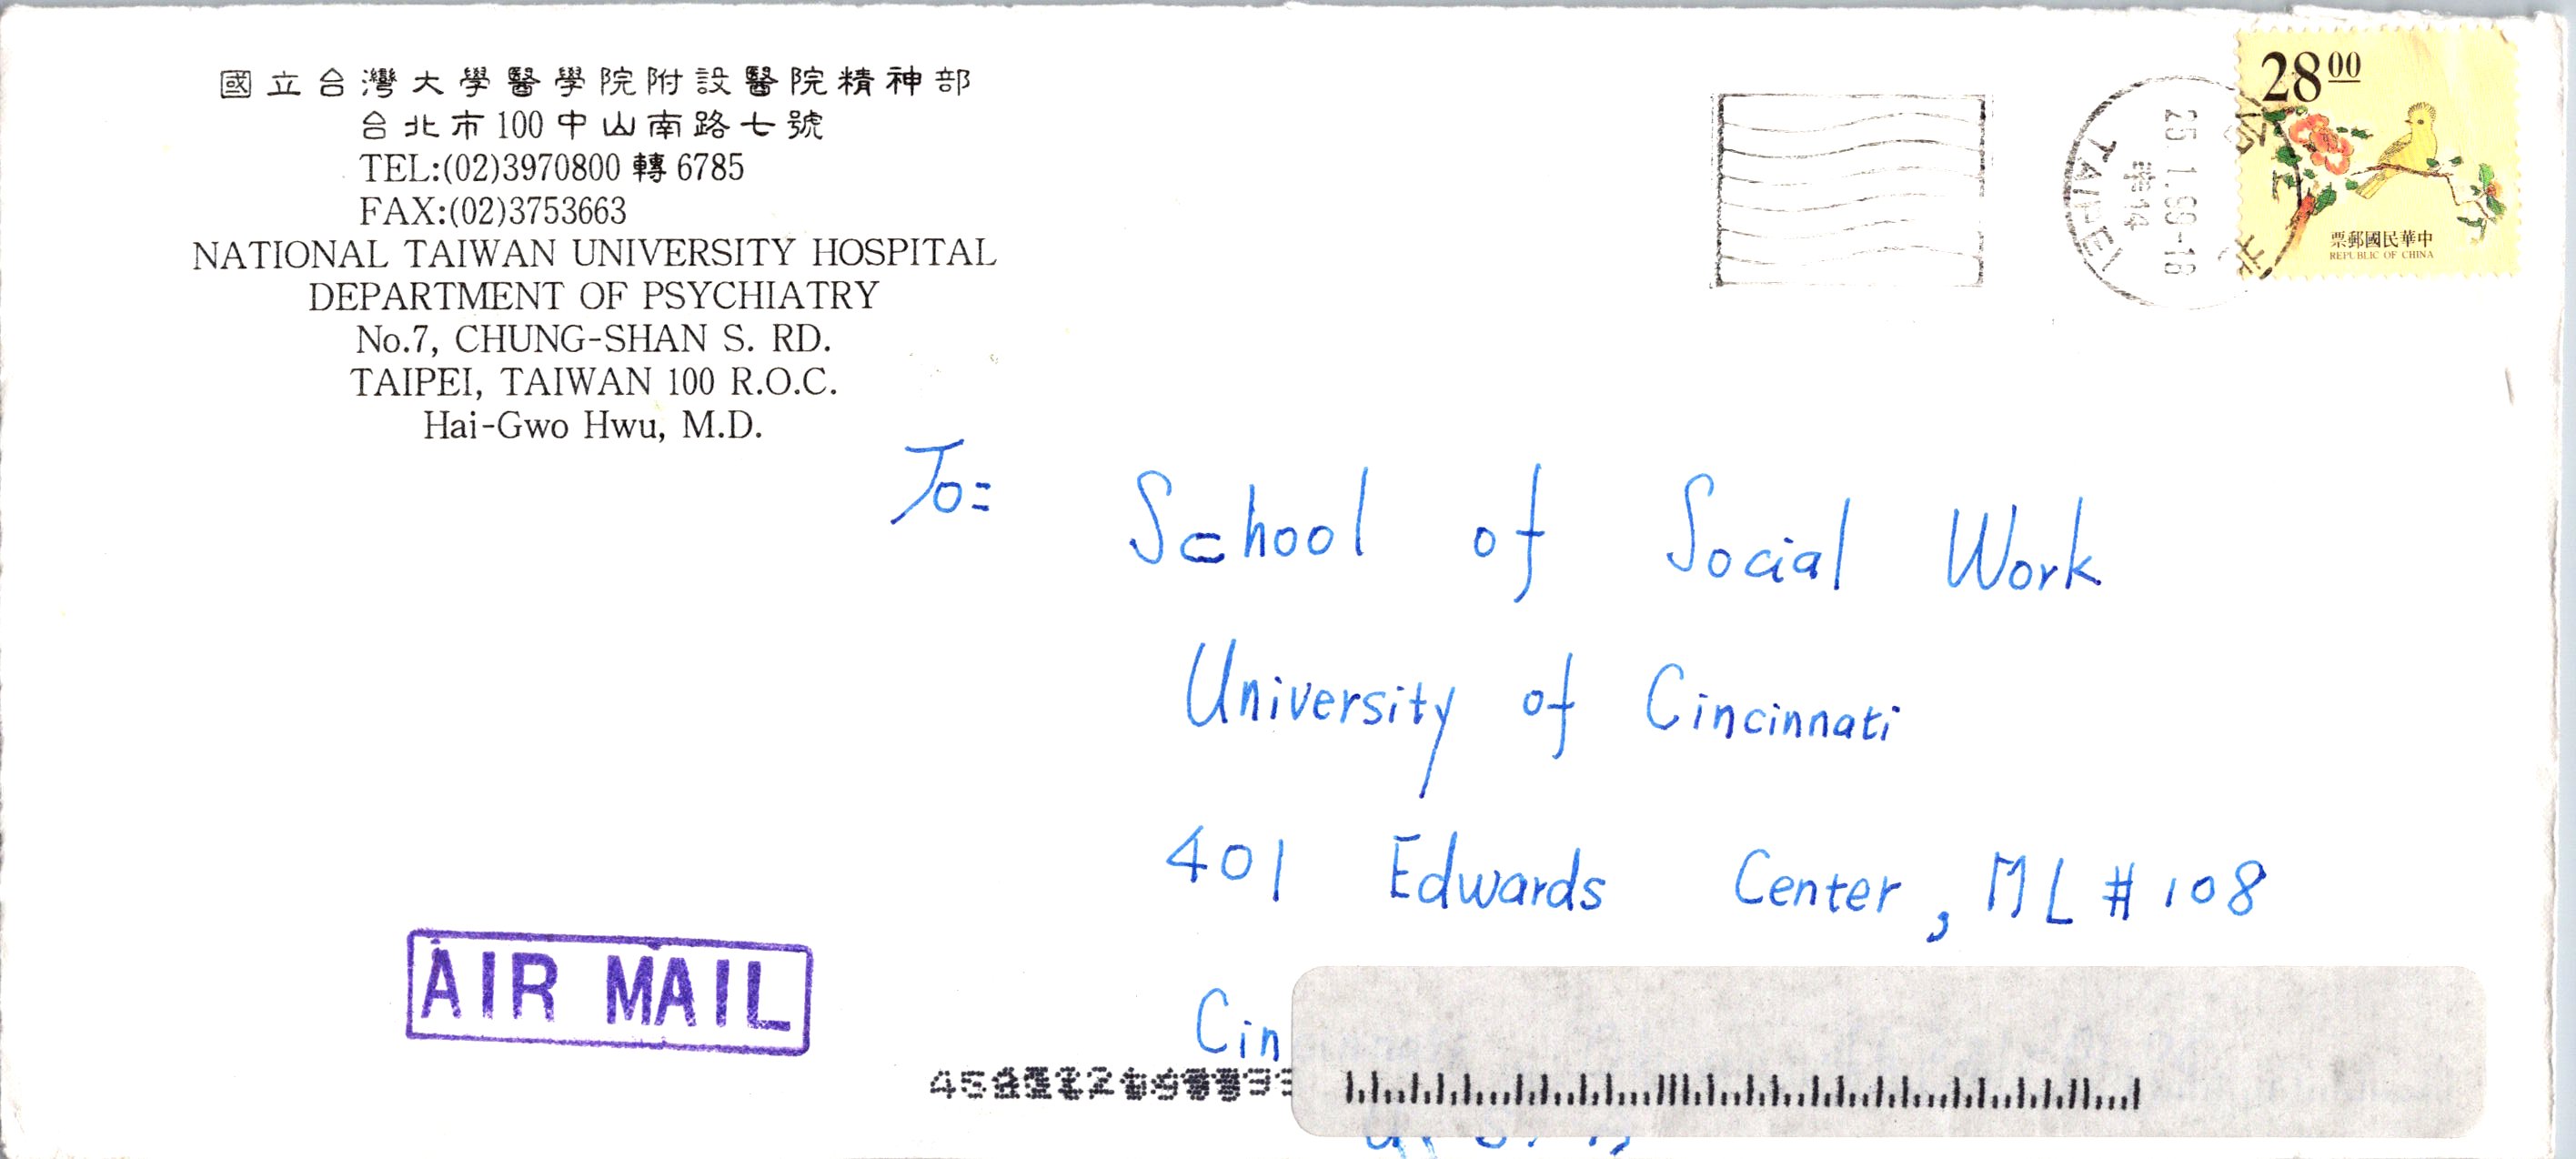 國立台灣大學醫學院附設醫院精神部
台北市100中山南路七號
TEL:(02)3970800 轉 6785
FAX:(02)3753663
NATIONAL TAIWAN UNIVERSITY HOSPITAL
DEPARTMENT OF PSYCHIATRY
No.7, CHUNG-SHAN S. RD.
TAIPEI, TAIWAN 100 R.O.C.
Hai-Gwo Hwu, M.D.
TAIPEI
28 00
票郵國民華中
REPUBLIC OF CHINA
To:
School of Social Work
University of Cincinnati
401 Edwards Center, ML # 108
Cin
AIR MAIL